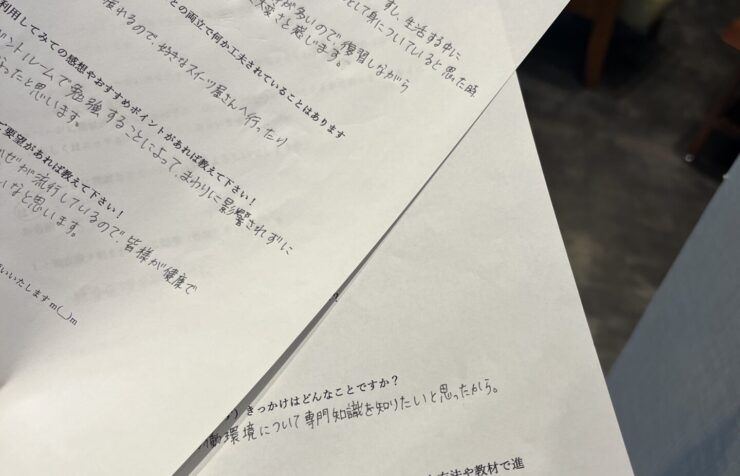 すし、生活する中に
として身についていると思った時
が多いので、復習しながら
大変さと感じます。
との両立で何か工夫されていることはあります
疲れるので、好きなスイーツ屋さんへ行ったり
利用してみての感想やおすすめポイントがあれば教えて下さい！
ントルームで勉強することによって、まわりに影響されずに
ったと思います。
ご要望があれば教えて下さい！
かぜが流行しているので、皆様が健康で
いなと思います。
いいたしますm(__)m
きっかけはどんなことですか？
働環境について専門知識を知りたいと思ったから。
方法や教材で進